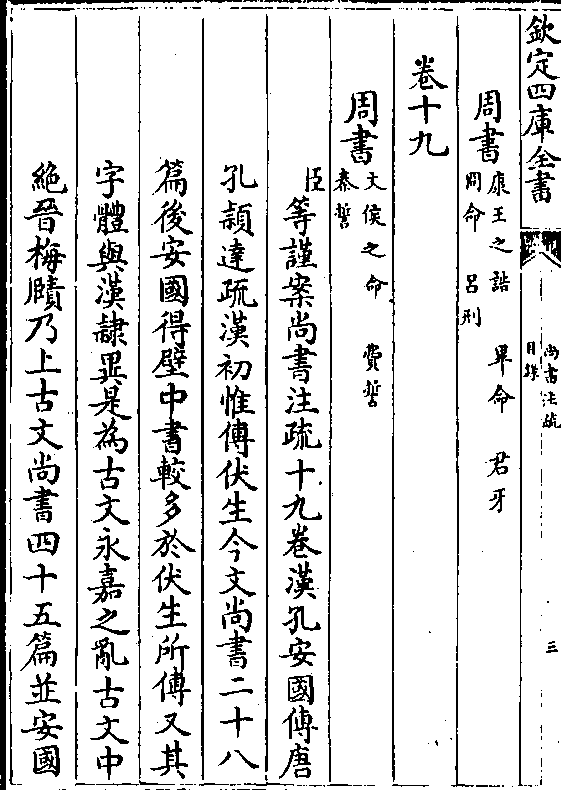 欽定四庫全書
尚書注疏
目錄
三
周書
康王之誥 畢命 君牙
冏命 呂刑
卷十九
周書
文侯之命 費誓
秦誓
臣等謹案尚書注疏十九卷漢孔安國傳唐
孔頴達疏漢初惟傳伏生今文尚書二十八
篇後安國得壁中書較多於伏生所傳又其
字體與漢隸異是為古文永嘉之亂古文中
絶晉梅賾乃上古文尚書四十五篇並安國